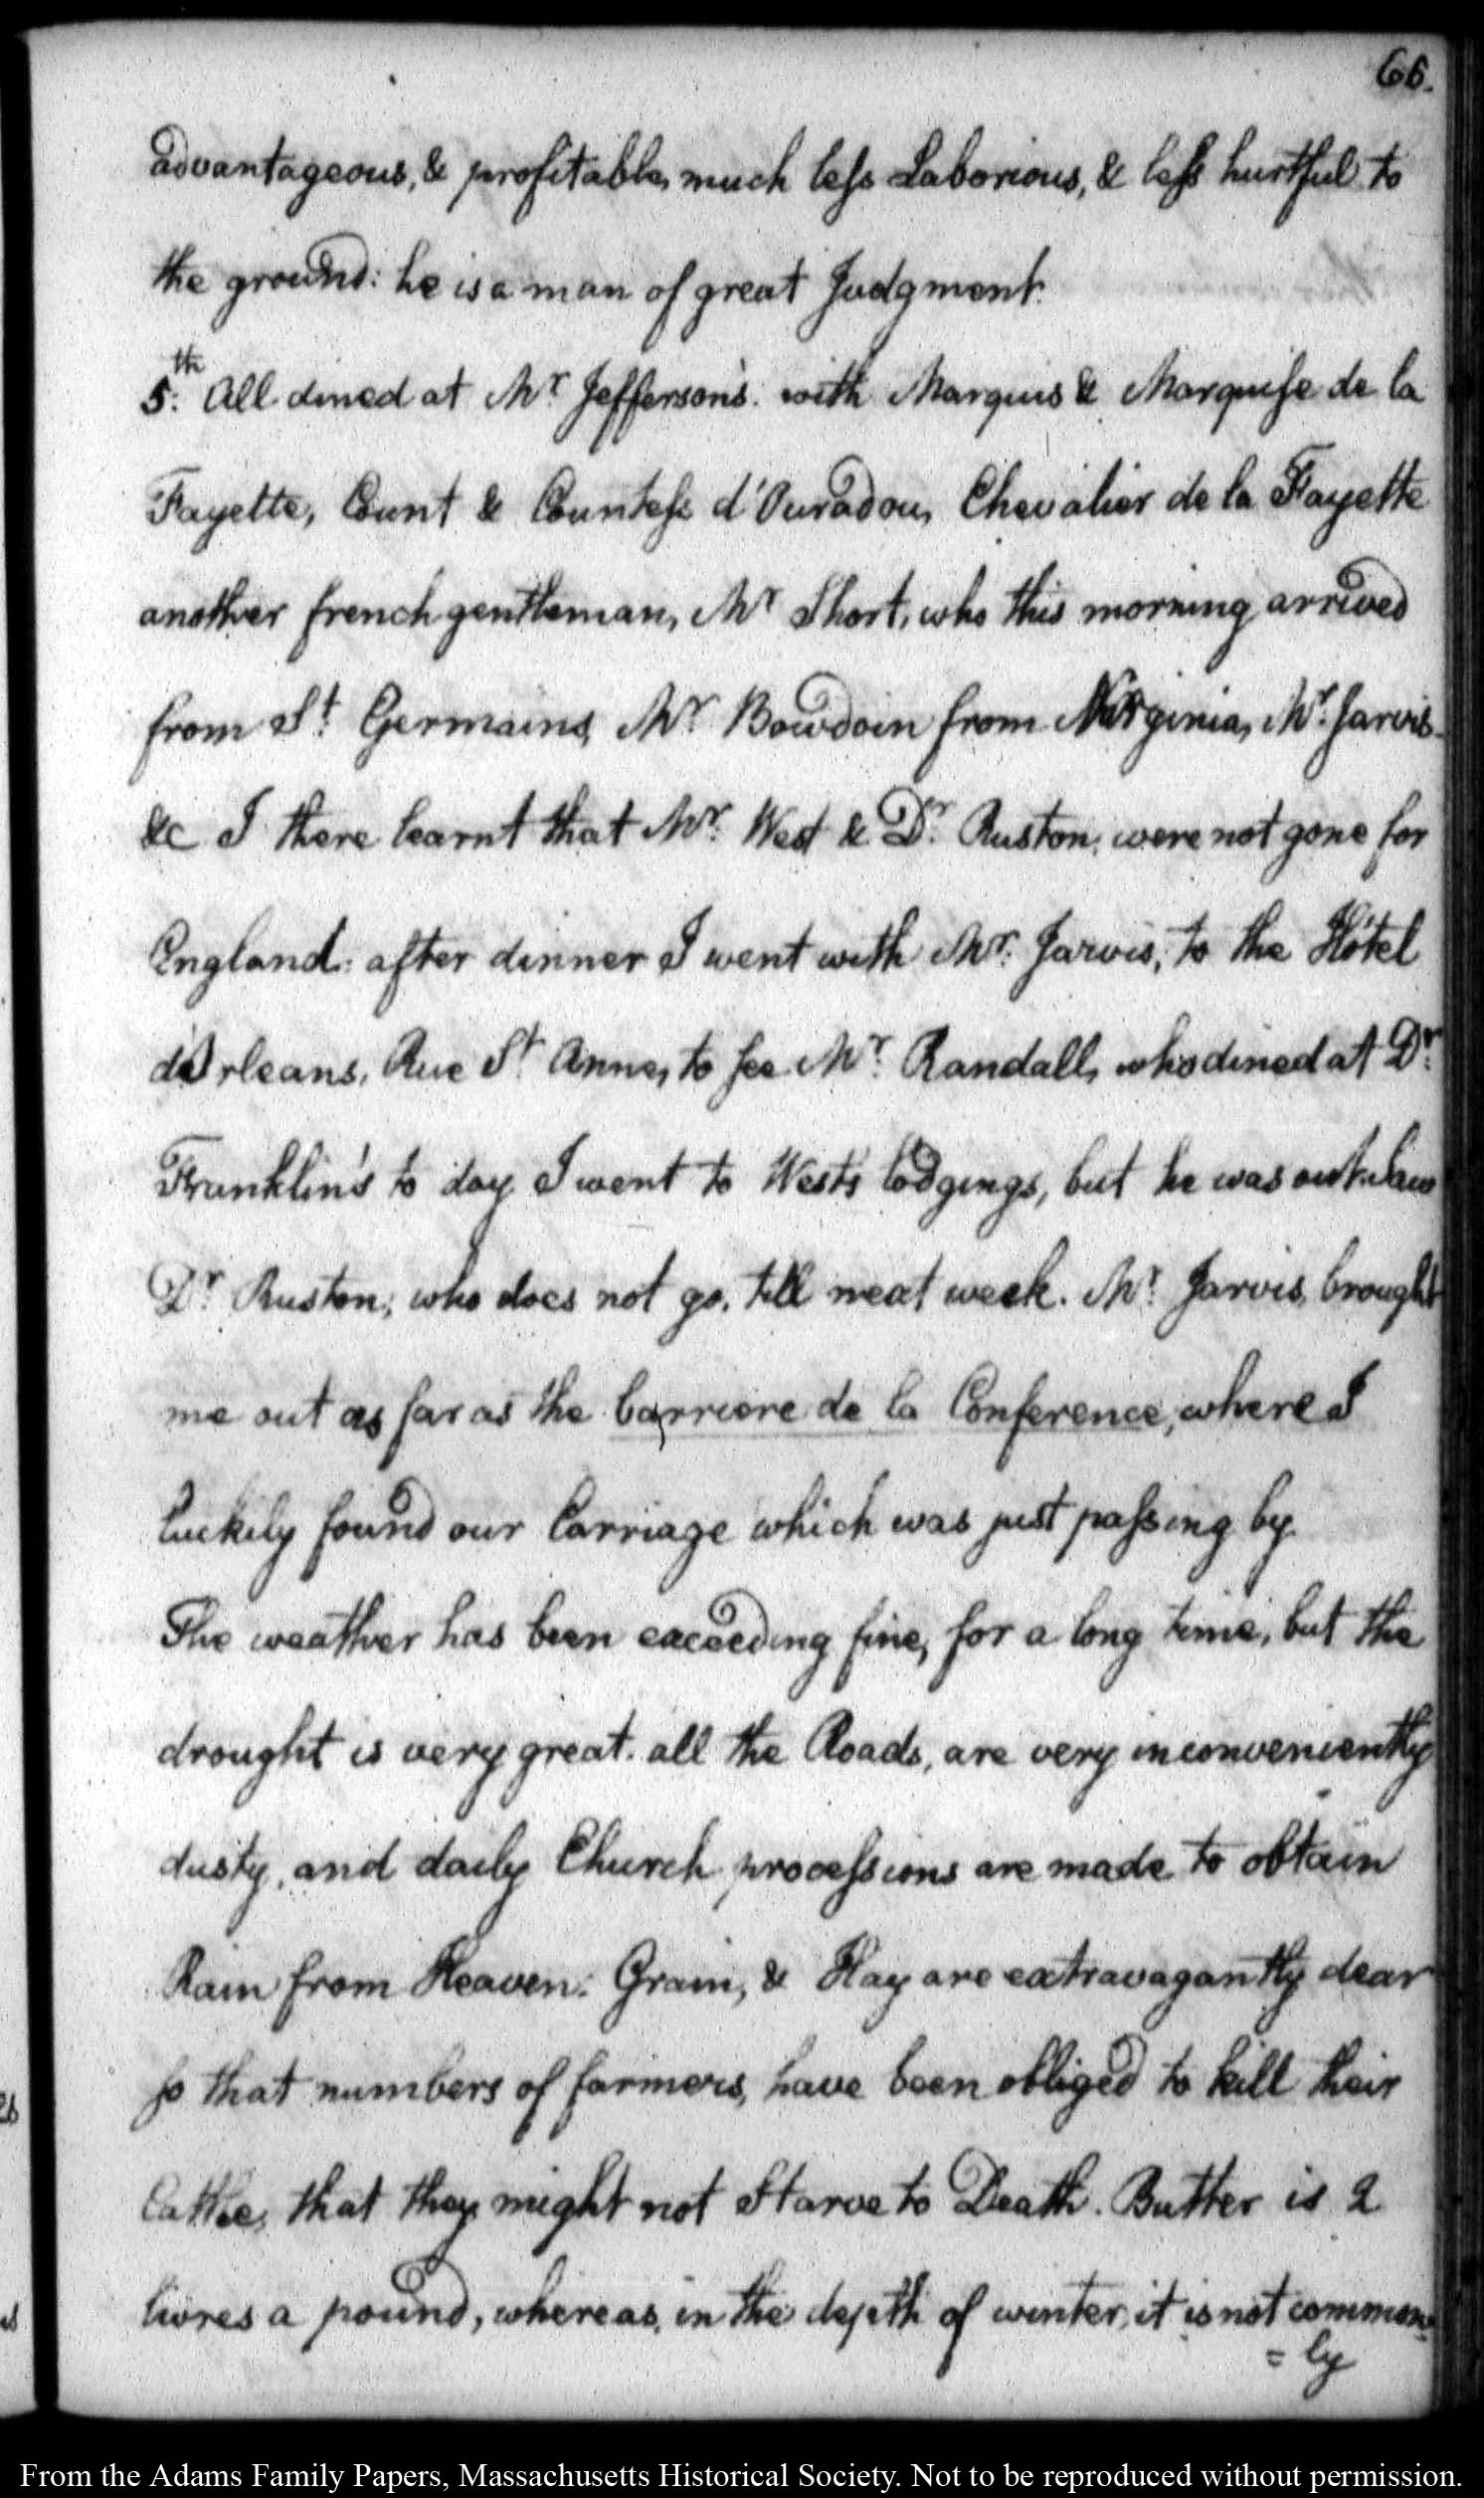 66.
advantageous, & profitable, much less Laborious, & less hurtful to
the ground: he is a man of great Judgment.
5.th All dined at Mr. Jefferson's. with Marquis & Marquise de la
Fayette, Count & Countess d'Ouradou, Chevalier de la Fayette
another french gentleman, Mr Short, who this morning arrived
from St. Germains, Mr. Bowdoin from Virginia, Mr. Jarvis
&c I there learnt that Mr. West & Dr. Ruston, were not gone for
England: after dinner I went with Mr. Jarvis, to the Hôtel
d'Orleans, Rue St. Anne, to see Mr. Randall, who dined at Dr.
Franklin's to day I went to Wests lodgings, but he was out. saw
Dr. Ruston, who does not go, till next week. Mr. Jarvis, brought
me out as far as the barriere de la Conference, where I
luckily found our Carriage which was just passing by.
The weather has been exceeding fine, for a long time, but the
drought is very great. all the Roads, are very inconveniently
dusty, and daily Church processions are made to obtain
Rain from Heaven. Grain, & Hay are extravagantly dear
so that numbers of farmers, have been obliged to kill their
Cattle, that they might not Starve to Death. Butter is 2
livres a pound, whereas, in the depth of winter, it is not common
=ly
From the Adams Family Papers, Massachusetts Historical Society. Not to be reproduced without permission.